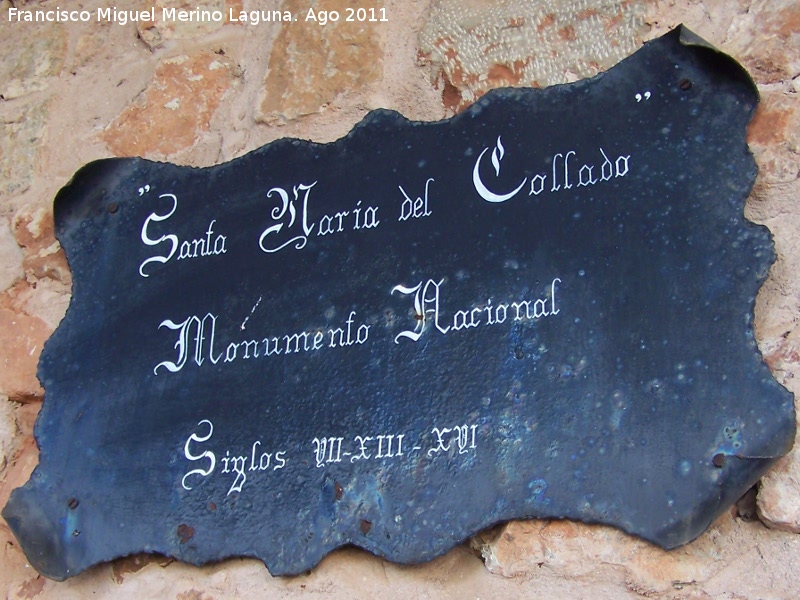 Francisco Miguel Merino Laguna. Ago 2011
"Santa María del Collado"
Mónumento Nacional
Siglos VII-XIII-XVI